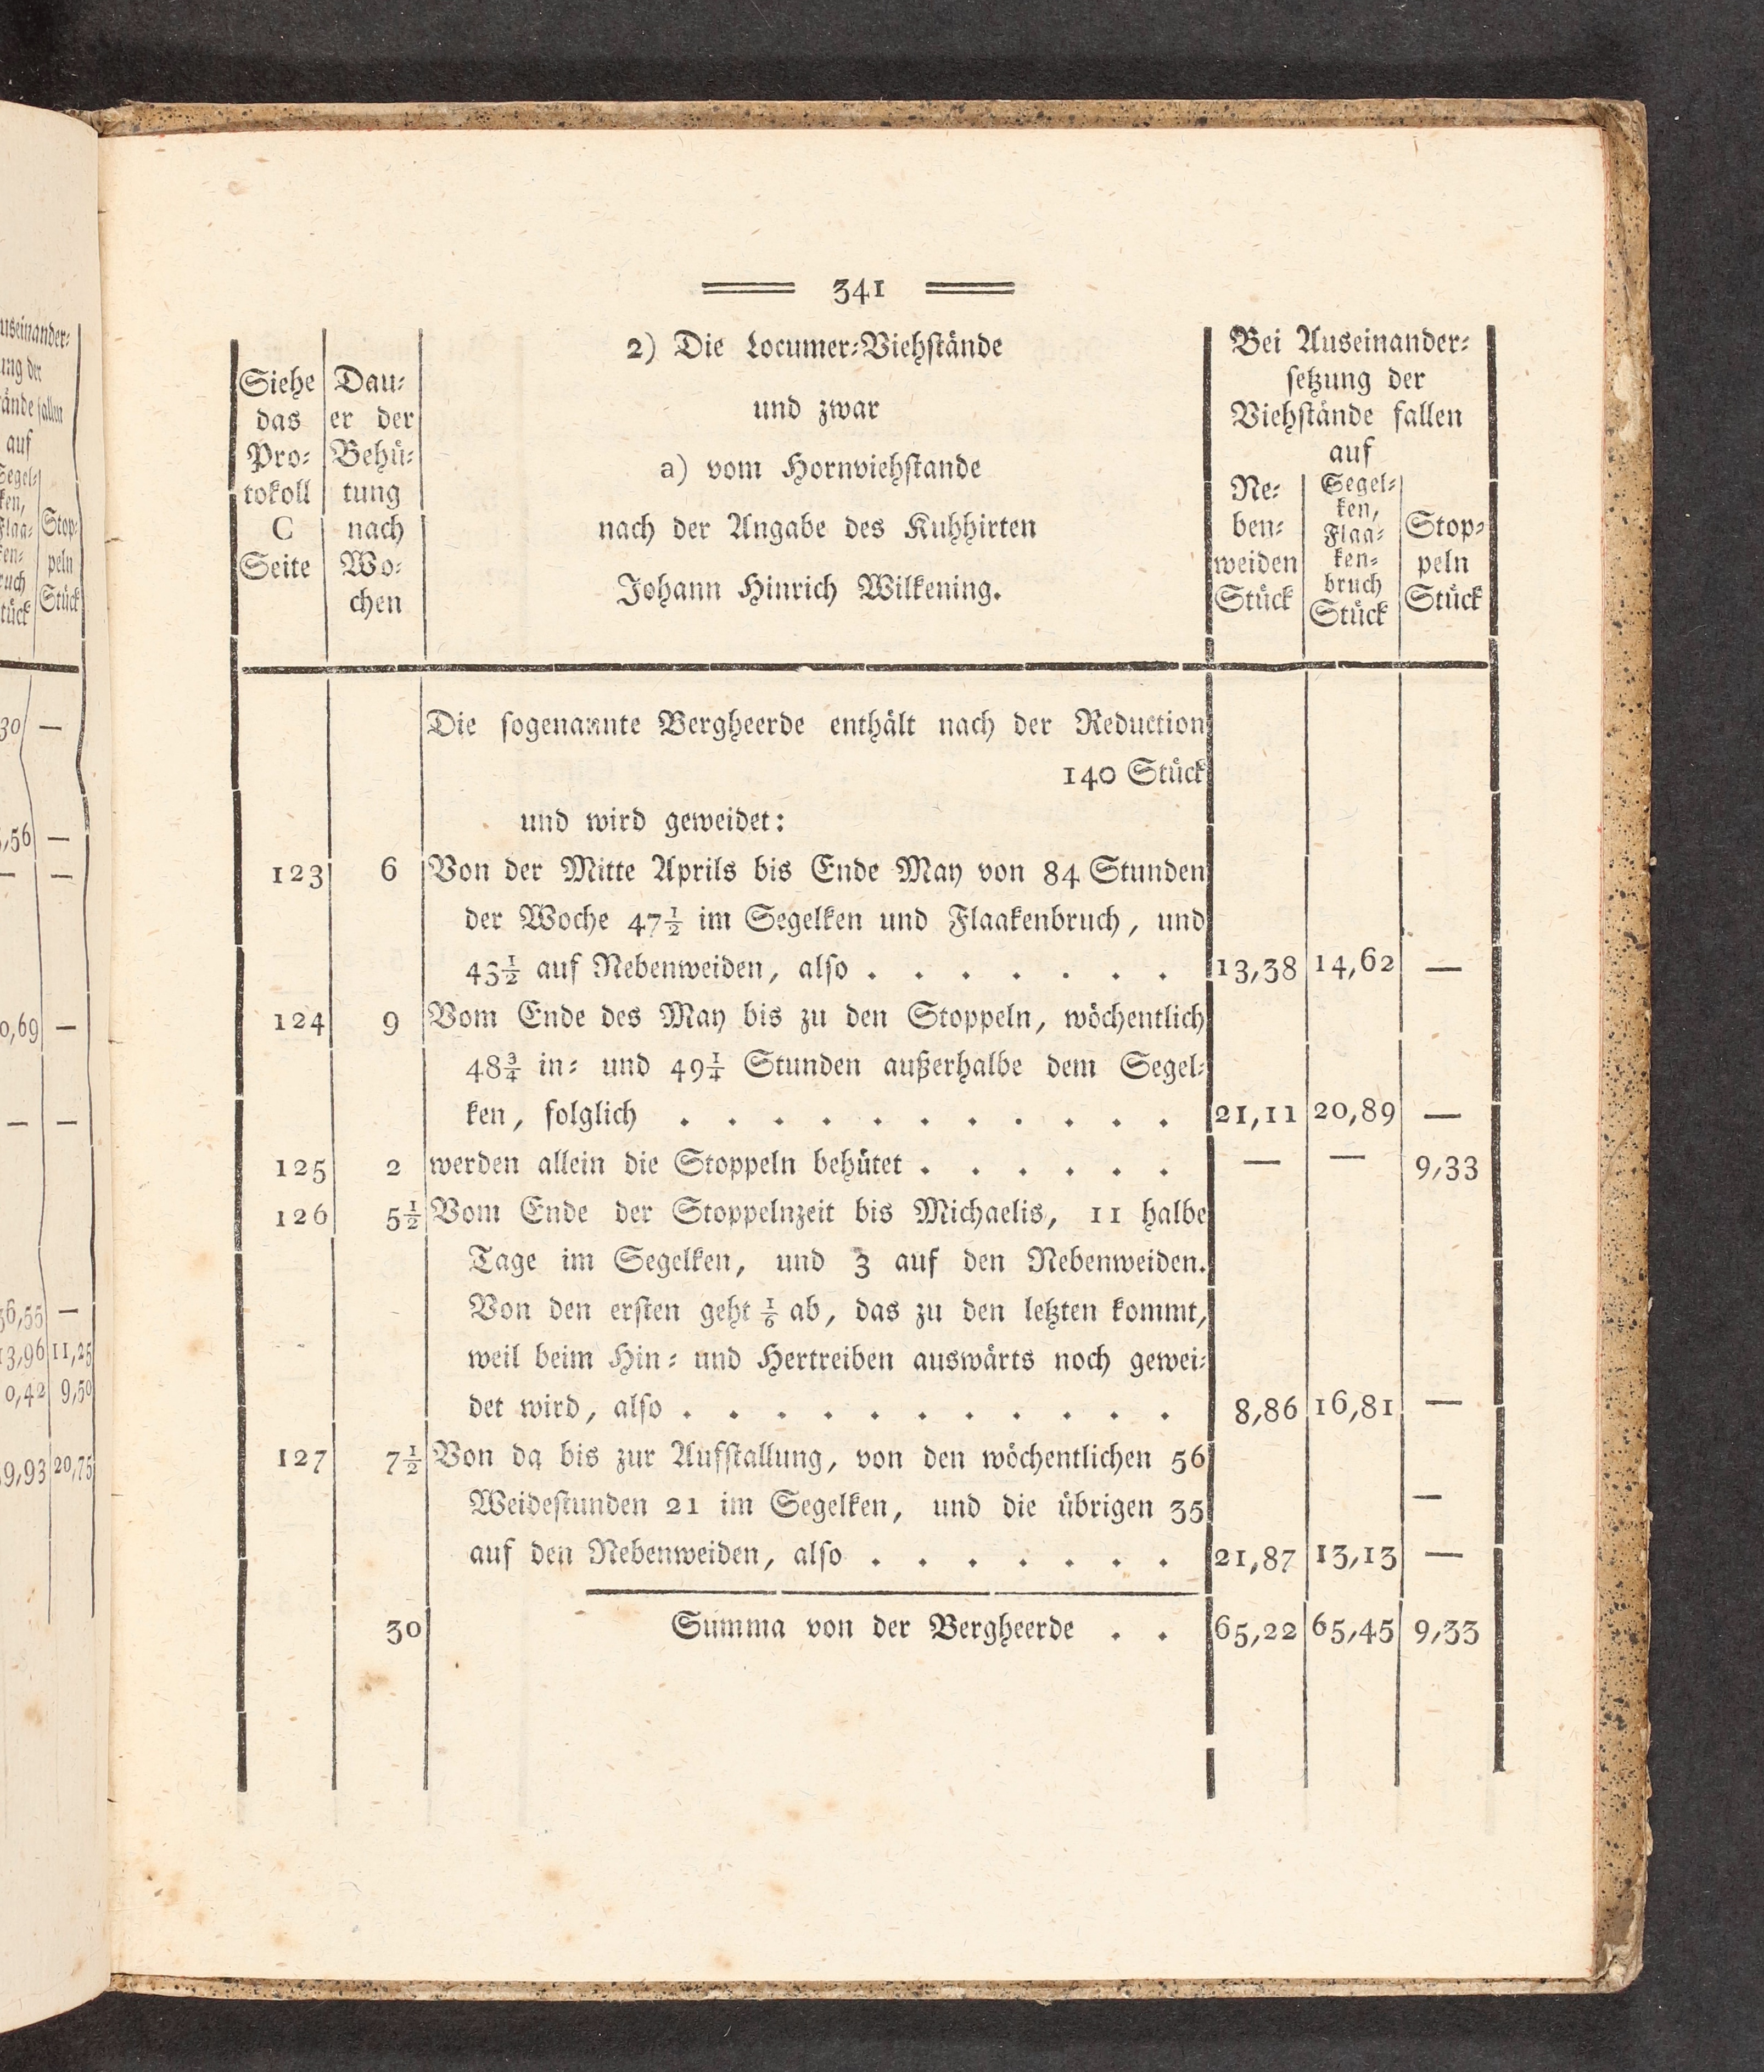 auf
Stop-
peln
Stück
30 —
,56 —
— —
0,69 —
— —
36,55 —
13,96 11,25
0,42 9,50
9,93 20,75
341
Siehe
das
Pro-
tokoll
C
Seite
Dau-
er der
Behü-
tung
nach
Wo-
chen
2) Die Locumer-Viehstände
und zwar
a) vom Hornviehstande
nach der Angabe des Kuhhirten
Johann Hinrich Wilkening.
Bei Auseinander-
setzung der
Viehstände fallen
auf
Ne-
ben-
weiden
Stück
Segel-
ken,
Flaa-
ken-
bruch
Stück
Stop-
peln
Stück
Die sogenannte Bergheerde enthält nach der Reduction
140 Stück
und wird geweidet:
123 6 Von der Mitte Aprils bis Ende May von 84 Stunden
der Woche 47½ im Segelken und Flaakenbruch, und
43½ auf Nebenweiden, also . . . . . . . 13,38 14,62 —
124 9 Vom Ende des May bis zu den Stoppeln, wöchentlich
48¾ in- und 49¼ Stunden außerhalbe dem Segel-
ken, folglich . . . . . . . . . . . 21,11 20,89 —
125 2 werden allein die Stoppeln behütet . . . . . . — — 9,33
126 5½ Vom Ende der Stoppelnzeit bis Michaelis, 11 halbe
Tage im Segelken, und 3 auf den Nebenweiden.
Von den ersten geht ⅙ ab, das zu den letzten kommt,
weil beim Hin- und Hertreiben auswärts noch gewei-
det wird, also . . . . . . . . . . . 8,86 16,81 —
127 7½ Von da bis zur Aufstallung, von den wöchentlichen 56
Weidestunden 21 im Segelken, und die übrigen 35 —
auf den Nebenweiden, also . . . . . . . 21,87 13,13 —
30 Summa von der Bergheerde . . 65,22 65,45 9,33